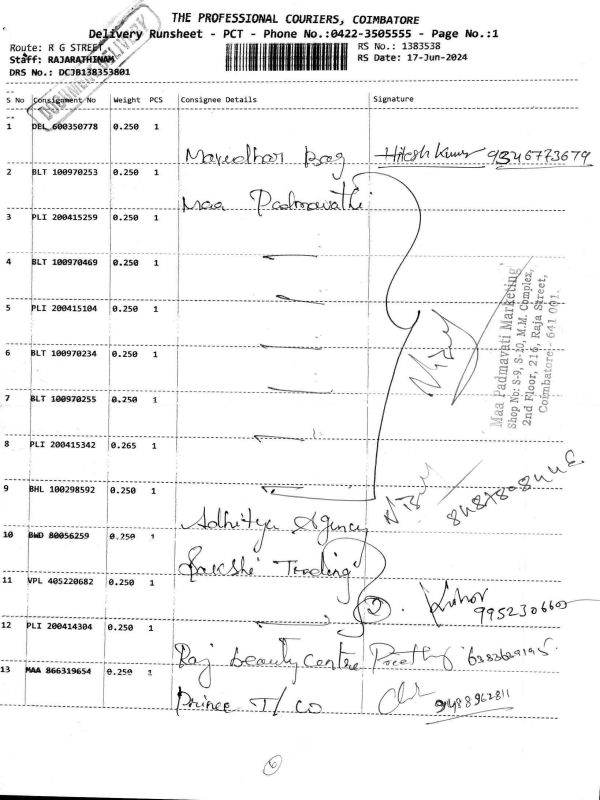 THE PROFESSIONAL COURIERS, COIMBATORE
Delivery Runsheet - PCT - Phone No.:0422-3505555 - Page No.:1
Route: R G STREET
RS No.: 1383538
Staff: RAJARATHINAM
RS Date: 17-Jun-2024
DRS No.: DCJB138353801
S No Consignment No Weight PCS Consignee Details Signature
1 DEL 600350778 0.250 1
Marudhar Bag Hitesh Kumar 9346773679
2 BLT 100970253 0.250 1
Maa Padmavathi
3 PLI 200415259 0.250 1
4 BLT 100970469 0.250 1
5 PLI 200415104 0.250 1
6 BLT 100970234 0.250 1
7 BLT 100970255 0.250 1
8 PLI 200415342 0.265 1
Maa Padmavati Marketing
Shop No: S-9, S-10, M.M. Complex,
2nd Floor, 216, Raja Street,
Coimbatore - 641 001.
9 BHL 100298592 0.250 1
Adhitya Agency
10 BWD 80056259 0.250 1
Sakshi Trading
11 VPL 405220682 0.250 1
2. Kishor
9952306603
12 PLI 200414304 0.250 1
Raj beauty centre Preethy 6383689195
13 MAA 866319654 0.250 1
Prince T/CO
9488962811
6